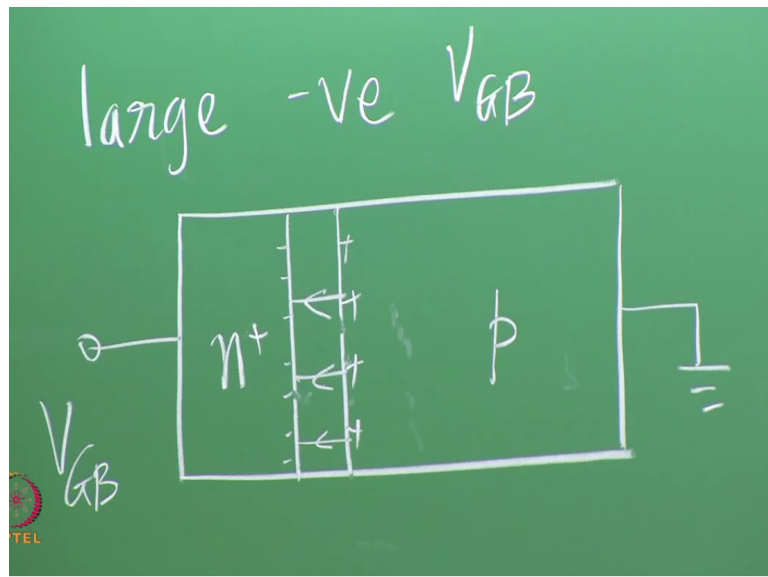 large -ve V_GB
n+ p
V_GB
PTEL